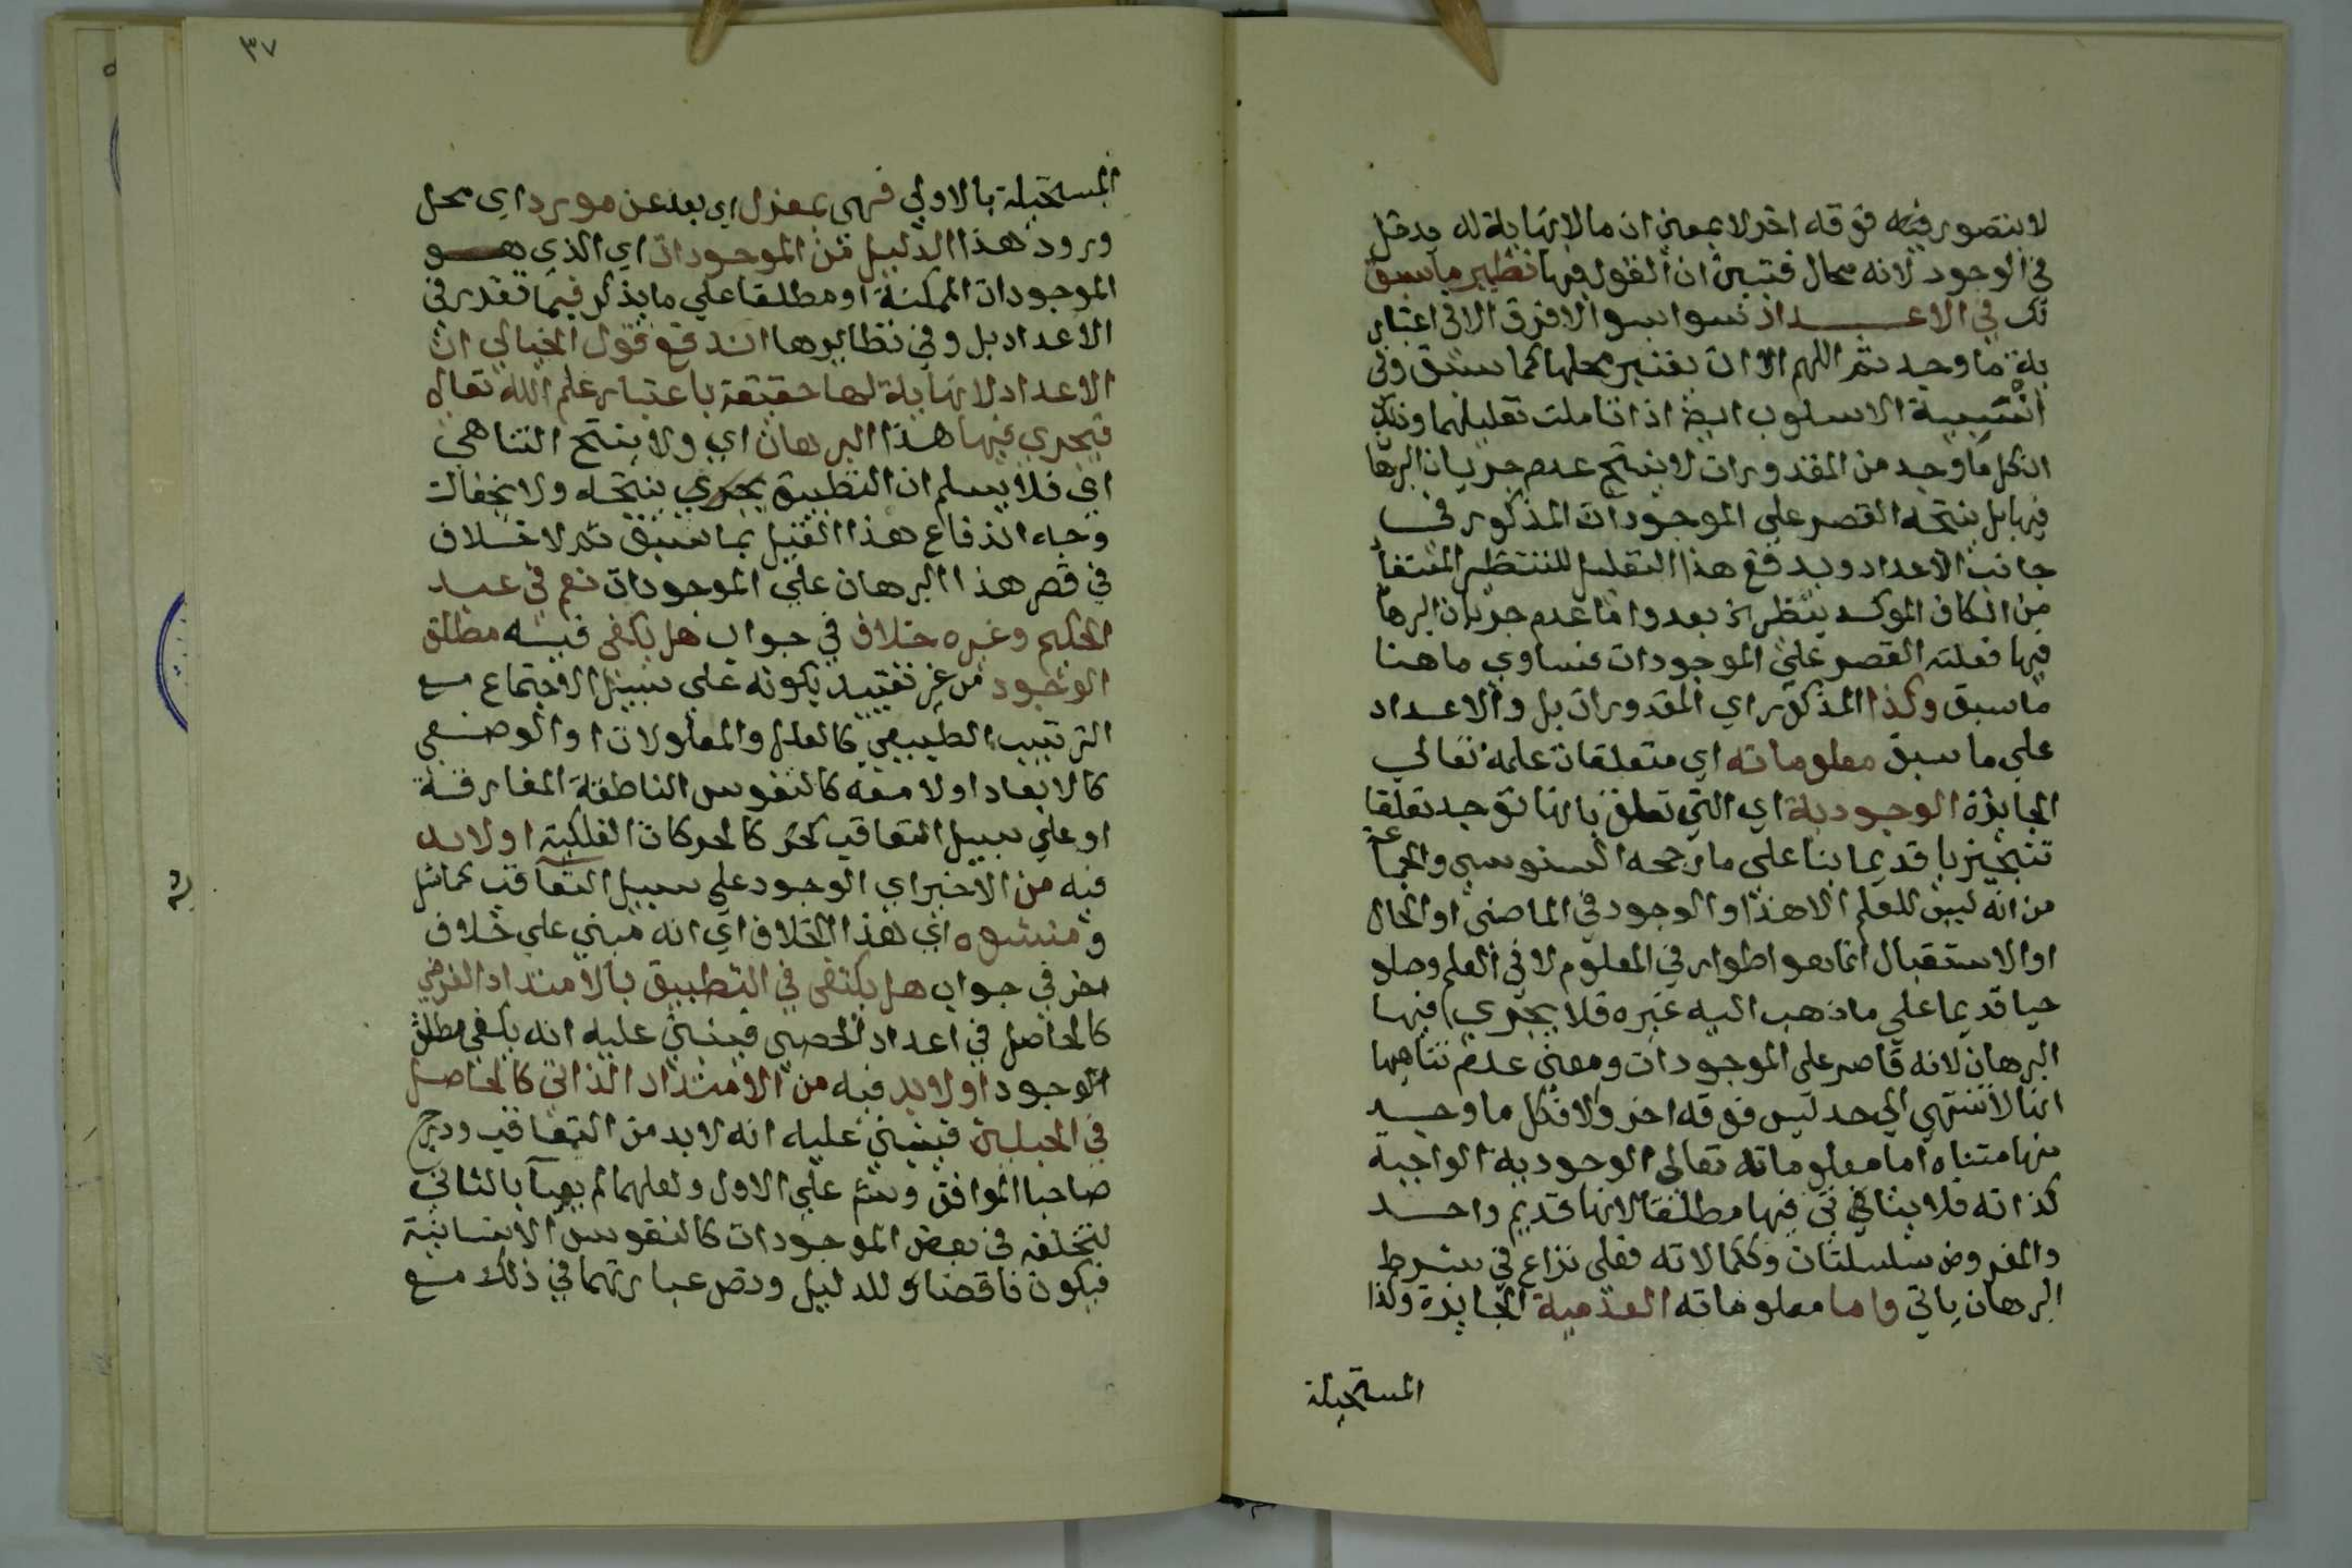 لا يتصور فيه فوقه اخر لا بمعني ان ما لا نهاية له يدخل
في الوجود لانه محال فتبين ان القول فيها نظير ما سبق
لك في الاعداد سوا بسوا لا فرق الا في اعتبار
ما وجد ثم اللهم الا ان يعتبر محلها كما سبق وفي
الاسلوب ايض اذا تاملت تعليلهما وذلك
ان كل ما وجد من المقدورات لا ينتج عدم جريان البرها
فيها بل ينتجه القصر علي الموجودات المذكور في
جانب الاعداد ويدفع هذا التعليل للتنظير
من الكاف الموكد بنظير بعد واما عدم جريان البرها
فيها فعلته القصر علي الموجودات فتساوي ما هنا
ما سبق وكذا المذكور اي المقدورات بل والاعداد
علي ما سبق معلوماته اي متعلقات علمه تعالي
الجايزة الوجودية اي التي تعلق بانها توجد تعلقا
تنجيزيا قديما بنا علي ما رجحه السنوسي والجماعة
من انه ليس للعلم الا هذا والوجود في الماضي او الحال
او الاستقبال انما هو اطوار في المعلوم لا في العلم وصلو
حيا قديما علي ما ذهب اليه غيره فلا يجري فيها
البرهان لانه قاصر علي الموجودات ومعني عدم تناهيها
انها لا تنتهي الي حد ليس فوقه اخر والا فكل ما وجد
منها متناه اما معلوماته تعالي الوجودية الواجبة
كذاته فلا يتاتي فيها مطلقا لانها قديم واحد
والمفروض سلسلتان وككمالاته فعلي نزاع في شرط
البرهان ياتي واما معلوماته العدمية الجايزة وكذا
المستحيلة
٣٧
المستحيلة بالاولي فهي بمعزل اي بعد عن مورد اي محل
ورود هذا الدليل من الموجودات اي الذي هو
الموجودات الممكنة او مطلقا علي ما يذكر فيما تقدم في
الاعداد بل وفي نظايرها اندفع قول الخيالي ان
الاعداد لا نهاية لها حقيقة باعتبار علم الله تعالي
فيجري فيها هذا البرهان اي ولا ينتج التناهي
اي فلا يسلم ان التطبيق يجري ينتجه ولا يخفاك
وجه اندفاع هذا القيل بما سبق ثم لا خلاف
في قصر هذا البرهان علي الموجودات نعم في عبد
الحكيم وغيره خلاف في جواب هل يكفي فيه مطلق
الوجود من غير تقييد بكونه علي سبيل الاجتماع مع
الترتيب الطبيعي كالعلل والمعلولات او الوضعي
كالابعاد او لا معه كالنفوس الناطقة المفارقة
او علي سبيل التعاقب كالحركات الفلكية او لا بد
فيه من الاخير اي الوجود علي سبيل التعاقب
ومنشوه اي هذا الخلاف اي انه مبني علي خلاف
اخر في جواب هل يكتفي في التطبيق بالامتداد الفرضي
كالحاصل في اعداد الحصي فينبني عليه انه يكفي مطلق
الوجود او لا بد فيه من الامتداد الذاتي كالحاصل
في الحبلين فينبني عليه انه لا بد من التعاقب ودرج
صاحبا الموافق علي الاول ولعلهما لم يعبآ بالثاني
لتخلفه في بعض الموجودات كالنفوس الانسانية
فيكون ناقضا للدليل ونص عبارتهما في ذلك مع